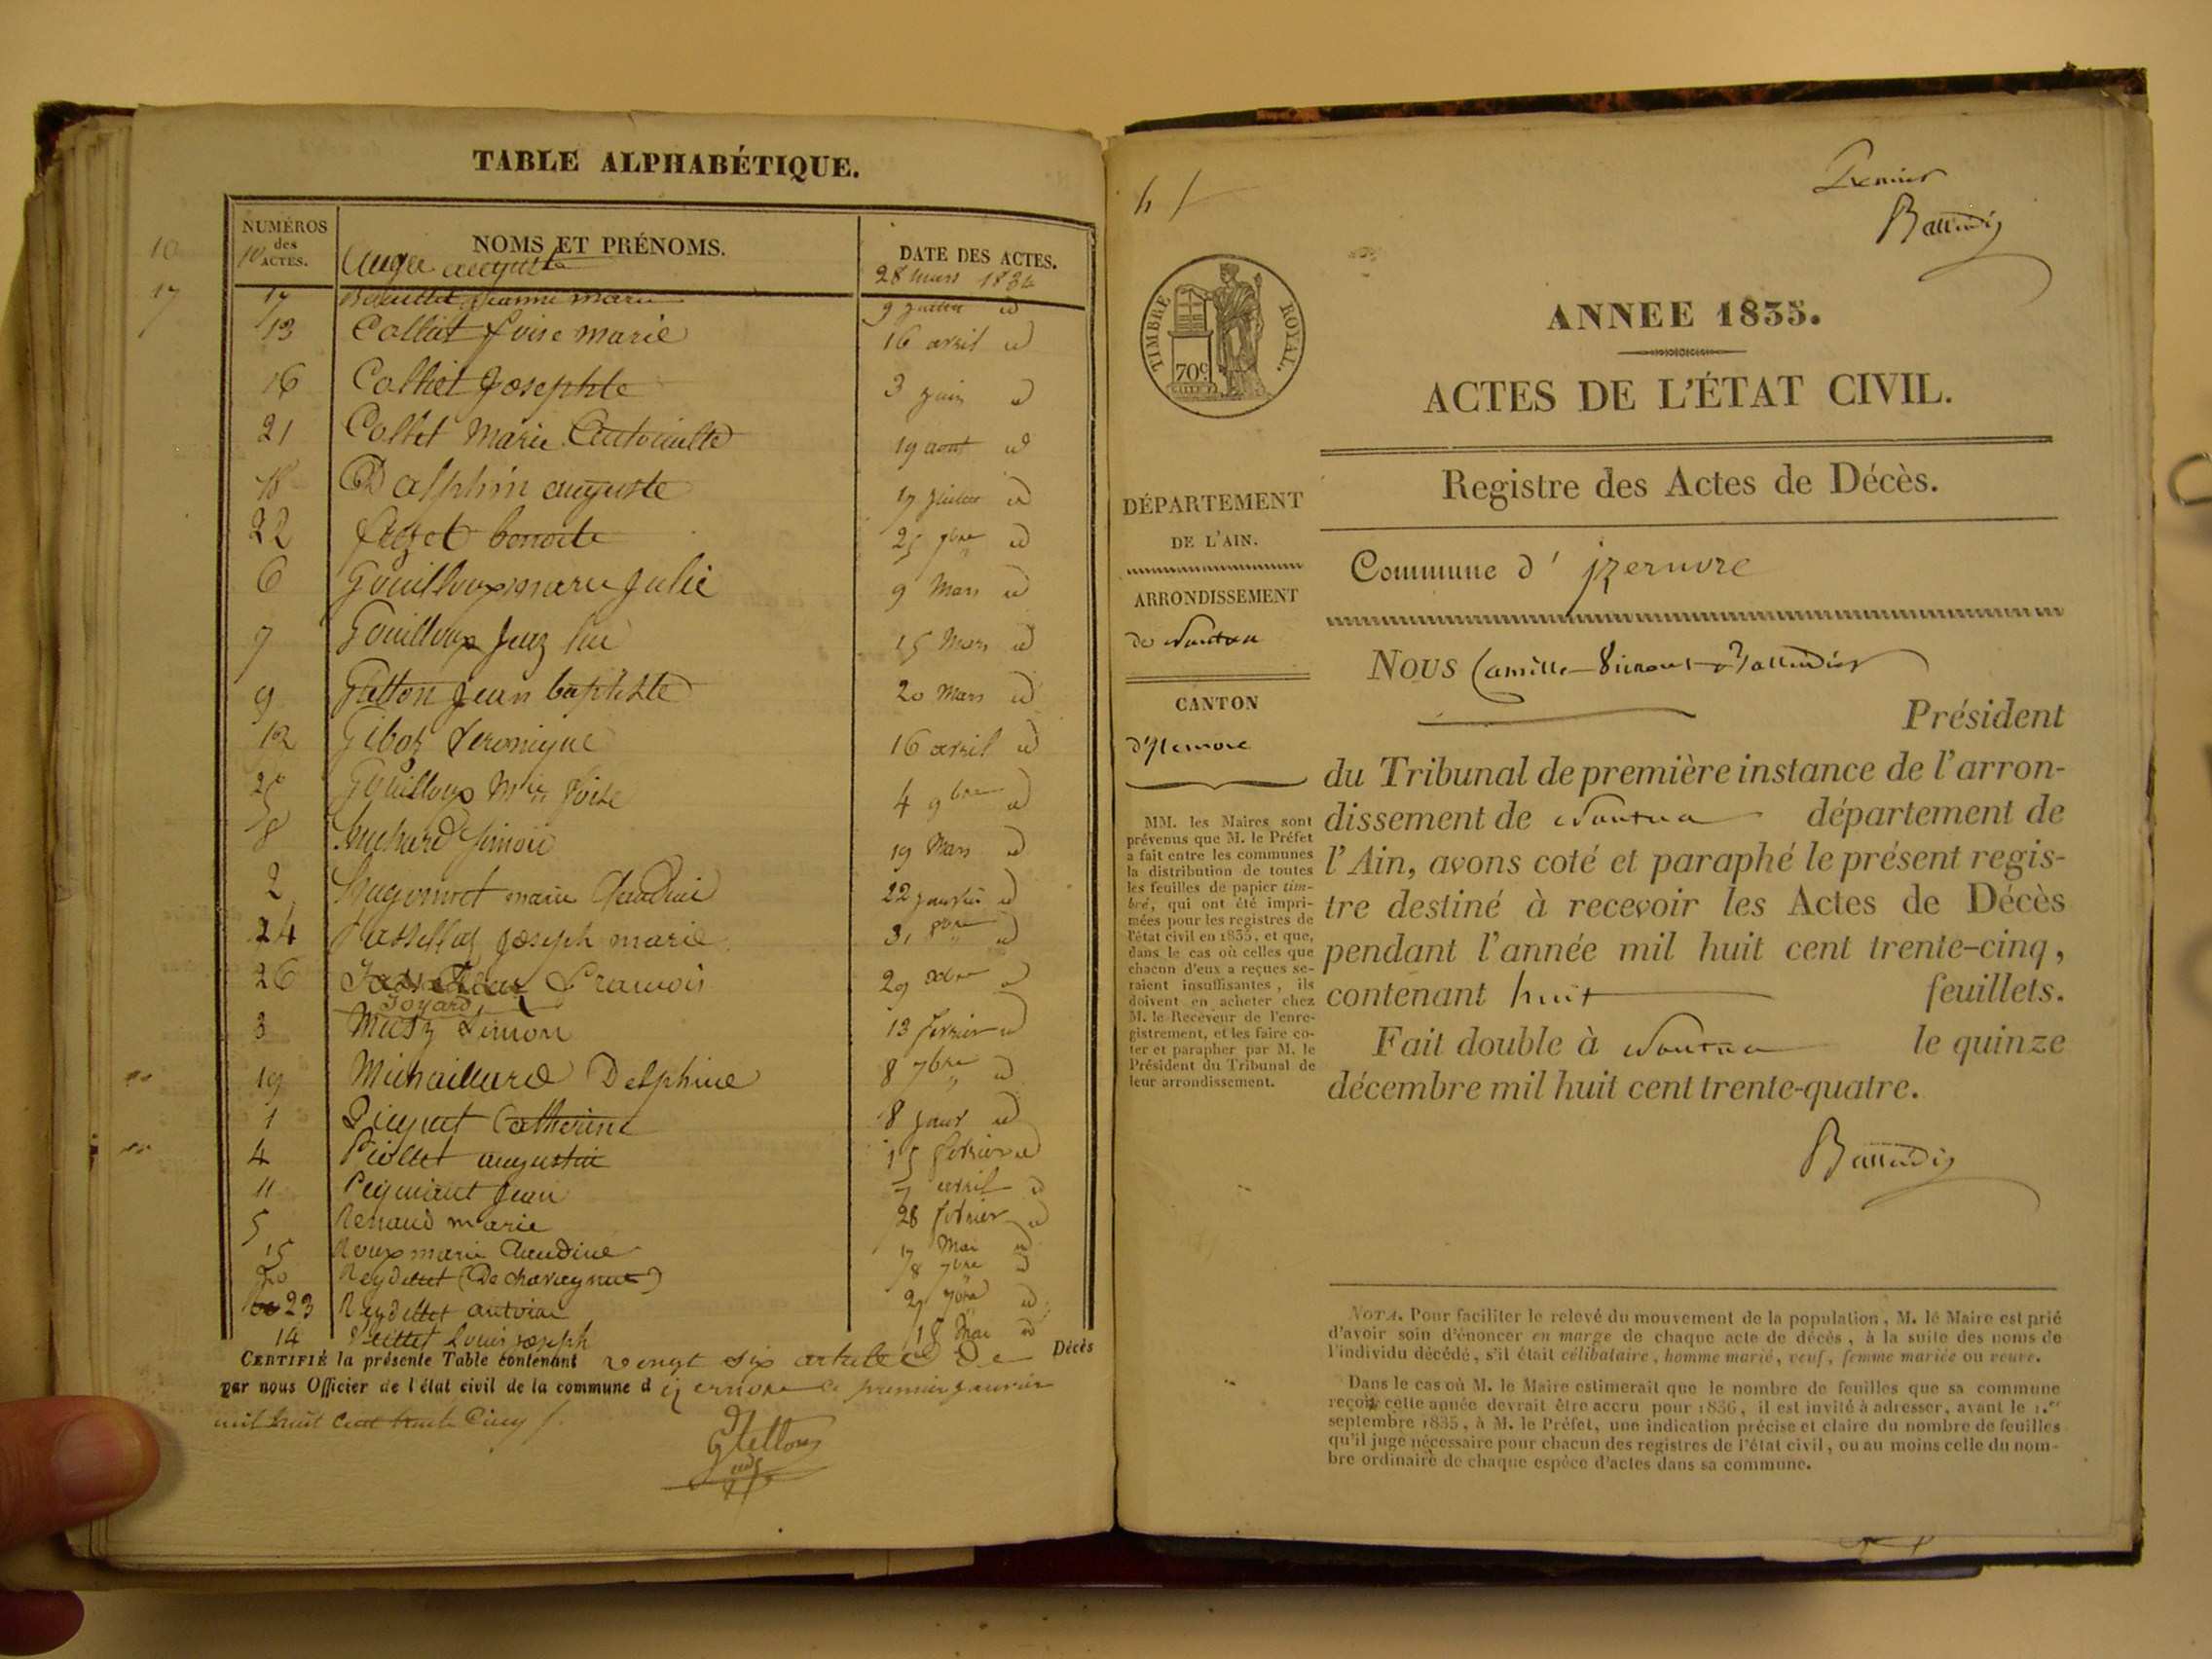 TABLE ALPHABÉTIQUE.
NUMÉROS des ACTES. NOMS ET PRÉNOMS. DATE DES ACTES.
10 10 auguste 28 mars 1834
17 17 Jeanne marie 9 juillet id
13 Collet foise marie 16 avril id
16 Collet Josephte 3 juin id
21 Collet Marie Antoinette 19 aout id
18 Dalphin auguste 17 juillet id
22 benoite 25 7bre id
6 Gouilloux marie Julie 9 Mars id
7 Gouilloux 15 Mars id
9 Jean baptiste 20 Mars id
12 Veronique 16 avril id
25 Gouilloux foise 4 9bre id
8 19 Mars id
2 Hugonnet marie Claudine 22 janvier id
24 Joseph marie 31 8bre id
26 Francois 29 xbre id
Joyard
3 Simon 13 fevrier id
19 Michaillard Delphine 8 7bre id
1 Catherine 8 janv id
4 Piollet augustin 15 fevrier id
11 Jean 7 avril id
5 Renaud marie 28 fevrier id
15 Roux marie Claudine 17 Mai id
20 Reydellet (De chareyna) 18 7bre id
23 Reydellet antoine 27 7bre id
14 Louis joseph 18 Mai id
CERTIFIÉ la présente Table contenant vingt six articles De Décès
par nous Officier de l'état civil de la commune d'izernore le premier janvier
mil huit cent trente cinq
Premier
TIMBRE ROYAL.
70 c
ANNEE 1835.
ACTES DE L'ÉTAT CIVIL.
Registre des Actes de Décès.
DÉPARTEMENT
DE L'AIN.
ARRONDISSEMENT
de Nantua
CANTON
d'Izernore
MM. les Maires sont
prévenus que M. le Préfet
a fait entre les communes
la distribution de toutes
les feuilles de papier tim-
bré, qui ont été impri-
mées pour les registres de
l'état civil en 1835, et que,
dans le cas où celles que
chacun d'eux a reçues se-
raient insuffisantes, ils
doivent en acheter chez
M. le Receveur de l'enre-
gistrement, et les faire co-
ter et parapher par M. le
Président du Tribunal de
leur arrondissement.
Commune d'izernore
NOUS Camille
Président
du Tribunal de première instance de l'arron-
dissement de Nantua département de
l'Ain, avons coté et paraphé le présent regis-
tre destiné à recevoir les Actes de Décès
pendant l'année mil huit cent trente-cinq,
contenant huit feuillets.
Fait double à Nantua le quinze
décembre mil huit cent trente-quatre.
NOTA. Pour faciliter le relevé du mouvement de la population, M. le Maire est prié
d'avoir soin d'énoncer en marge de chaque acte de décès, à la suite des noms de
l'individu décédé, s'il était célibataire, homme marié, veuf, femme mariée ou veuve.
Dans le cas où M. le Maire estimerait que le nombre de feuilles que sa commune
reçoit cette année devrait être accru pour 1836, il est invité à adresser, avant le 1.er
septembre 1835, à M. le Préfet, une indication précise et claire du nombre de feuilles
qu'il juge nécessaire pour chacun des registres de l'état civil, ou au moins celle du nom-
bre ordinaire de chaque espèce d'actes dans sa commune.